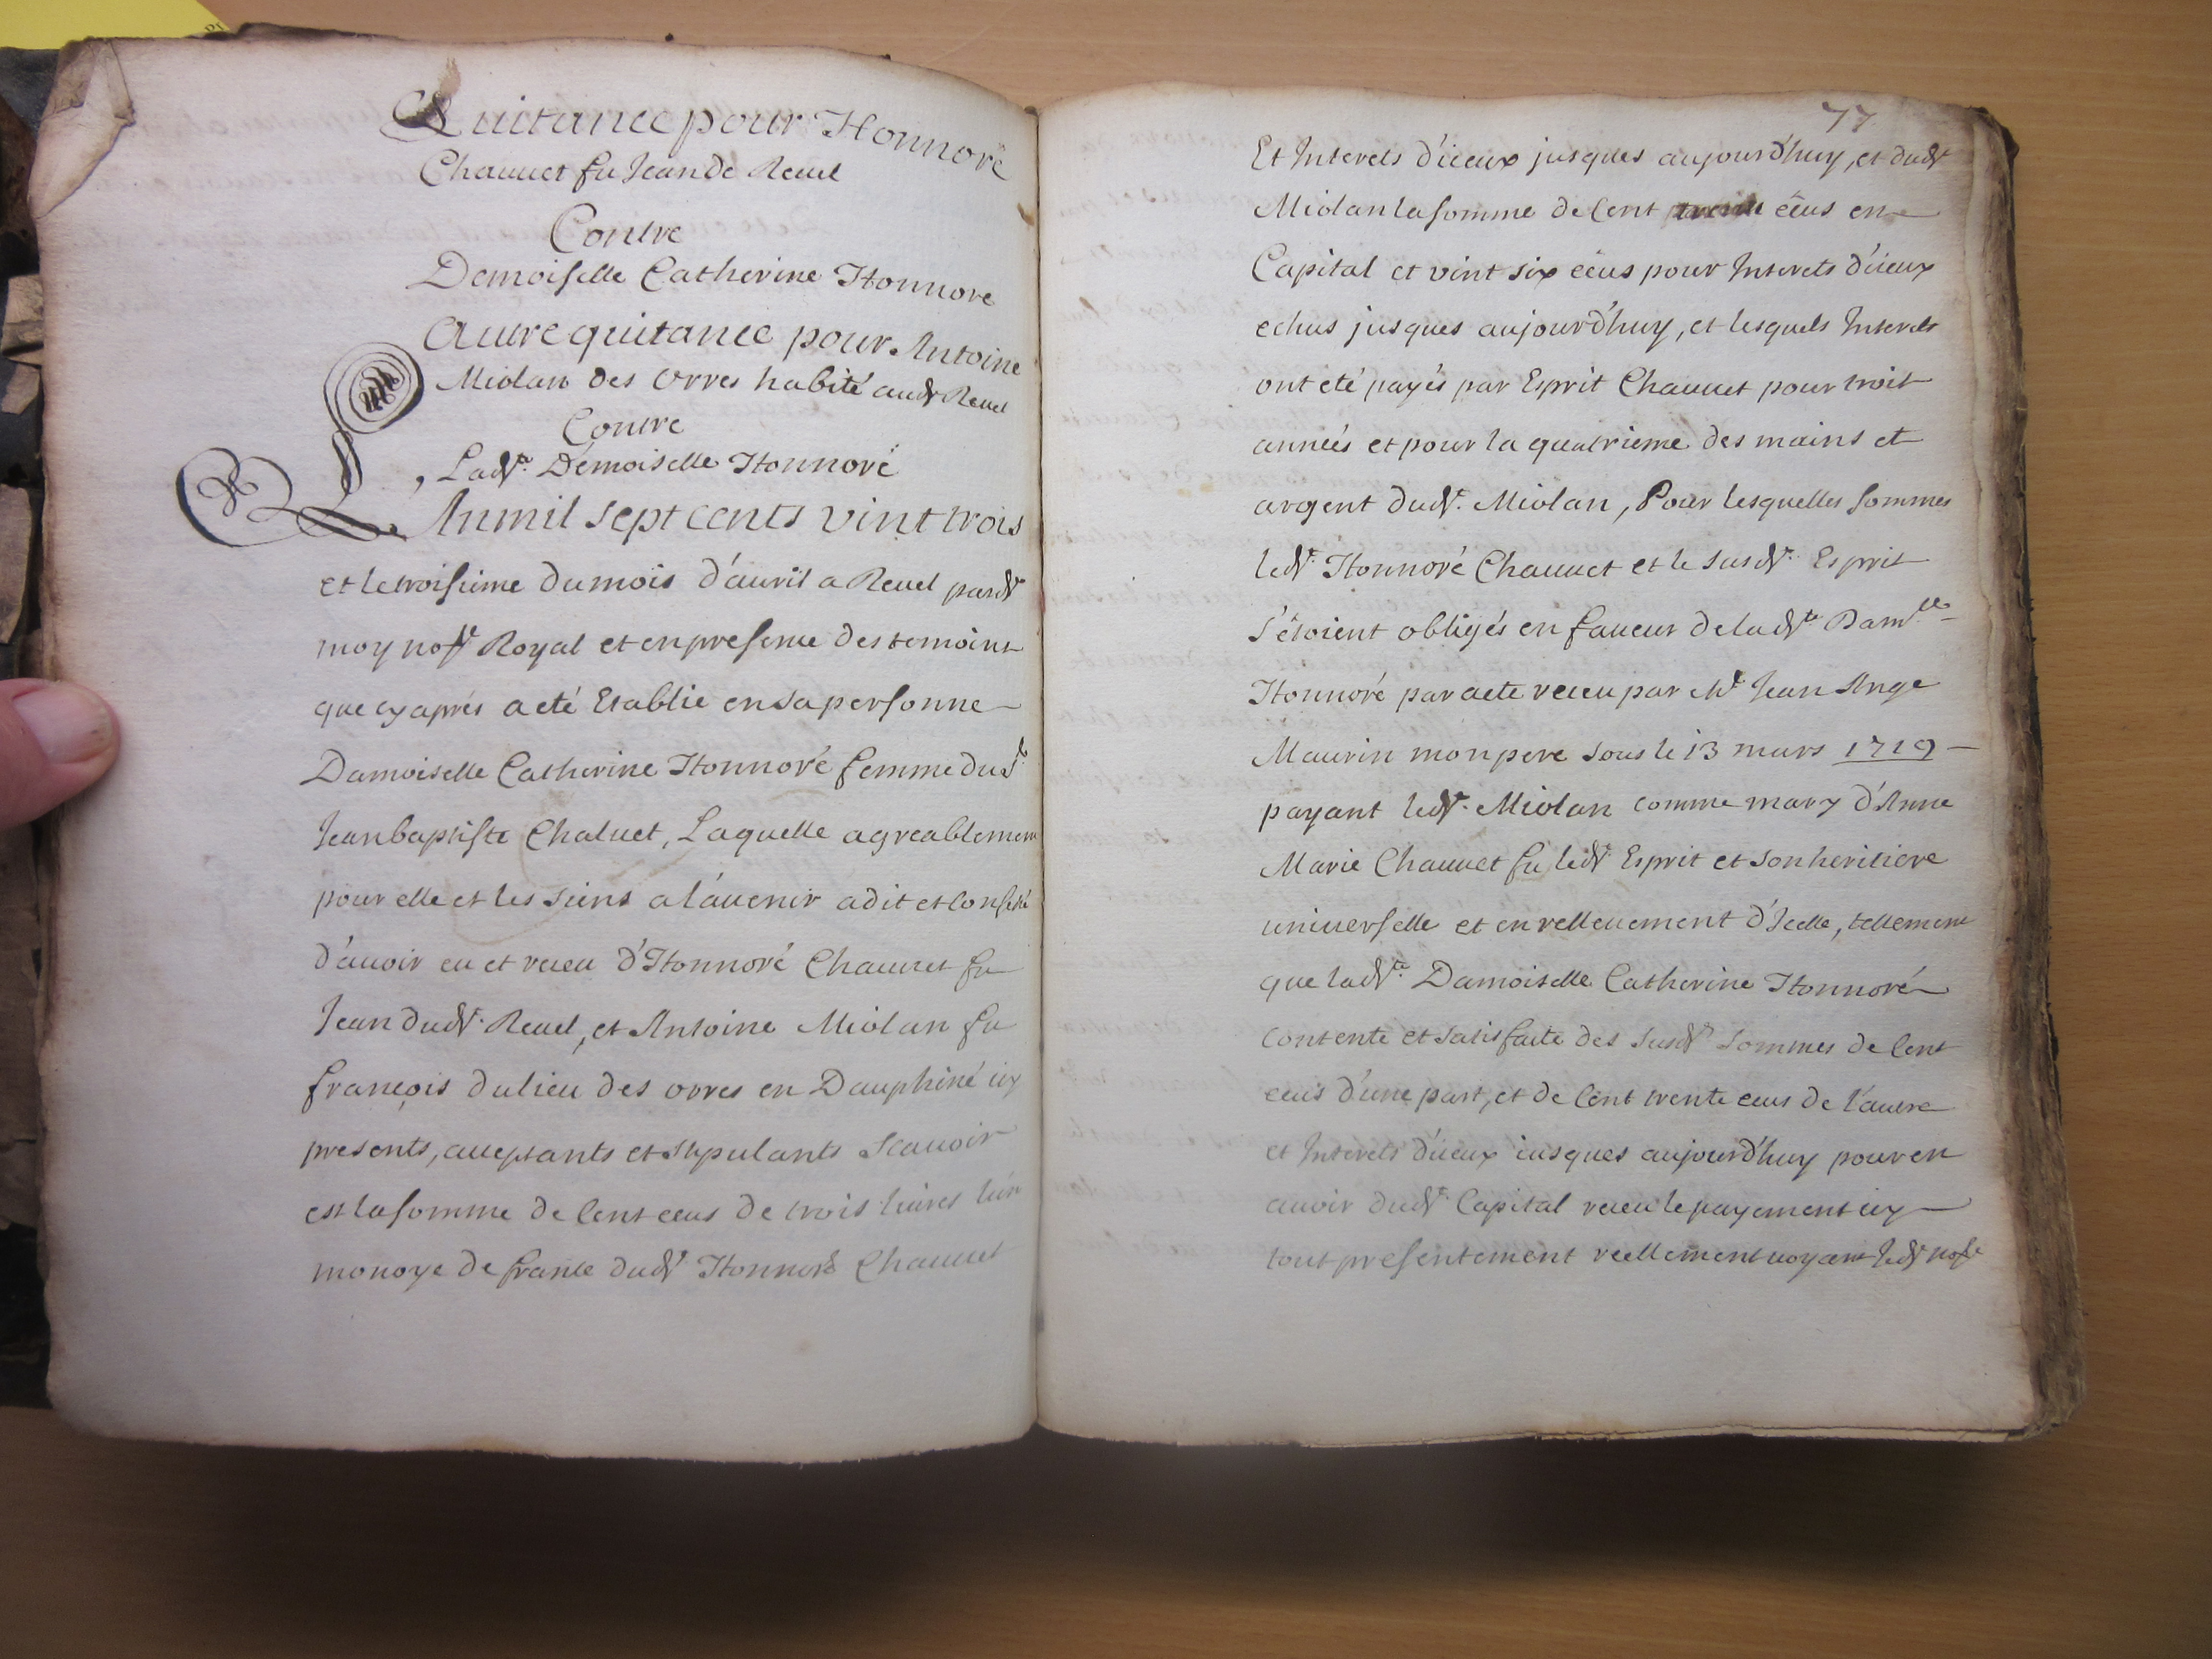 Quitance pour Honnoré
Chauuet fu Jean de Reuel
Contre
Demoiselle Catherine Honnore
Autre quitance pour Antoine
Miolan des orres habité audt Reuel
Contre
Ladte Demoiselle Honnoré
L'An mil sept cents vint trois
et le troisieme du mois d'auril a Reuel pardt
moy nore Royal et en presence des temoins
que cy aprés a eté Etablie en sa personne
Damoiselle Catherine Honnoré femme du Sr
Jean baptiste Chaluet, Laquelle agreablement
pour elle et les siens a l'áuenir a dit et confessé
d'áuoir eu et receu d'Honnoré Chauuet fu
Jean dudt Reuel, et Antoine Miolan fu
françois du lieu des orres en Dauphiné icy
presents, acceptants et stipulants Scauoir
est la somme de Cent ecus de trois liures l'un
monoye de france dudt Honnoré Chauuet
77
Et Interets d'iceux jusques aujourd'huy, et dudt
Miolan la somme de Cent trente écus en
Capital et vint six écus pour Interets d'iceux
echus jusques aujourd'huy, et lesquels Interets
ont eté payés par Esprit Chauuet pour trois
années et pour la quatrieme des mains et
argent dudt Miolan, Pour lesquelles sommes
ledt Honnoré Chauuet et le susdt Esprit
s'étoient obligés en faueur de ladte Damlle
Honnoré par acte receu par Me Jean Ange
Maurin mon pere sous le 13 mars 1719
payant ledt Miolan comme mary d'Anne
Marie Chauuet fu ledt Esprit et son heritiere
uniuerselle et en relleuement d'Icelle, tellement
que ladte Damoiselle Catherine Honnoré
Contente et satisfaite des susdts sommes de Cent
ecus d'une part, et de Cent trente ecus de l'autre
et Interets d'iceux jusques aujourd'huy pour en
auoir dudt Capital receu le payement icy
tout presentement reellement uoyant Jedt nore